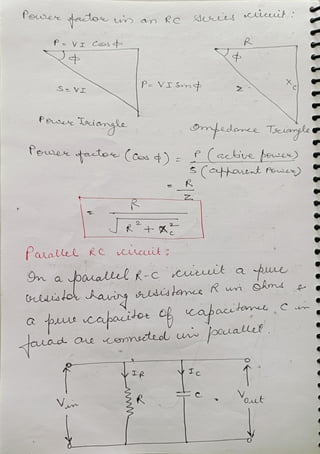 Power factor in an RC series circuit :
P = VI Cos ϕ
R
ϕ
ϕ
S = VI
P = VI Sinϕ
Z
Xc
Power Triangle
Impedance Triangle
Power factor (Cos ϕ) = P (active power) / S (apparent Power)
= R / Z
= R / √(R² + Xc²)
Parallel RC circuit :
In a parallel R-C circuit a pure
resistor having resistance R in Ohms &
a pure capacitor of capacitance C in
farad are connected in parallel.
IR
Ic
Vin
R
C
Vout